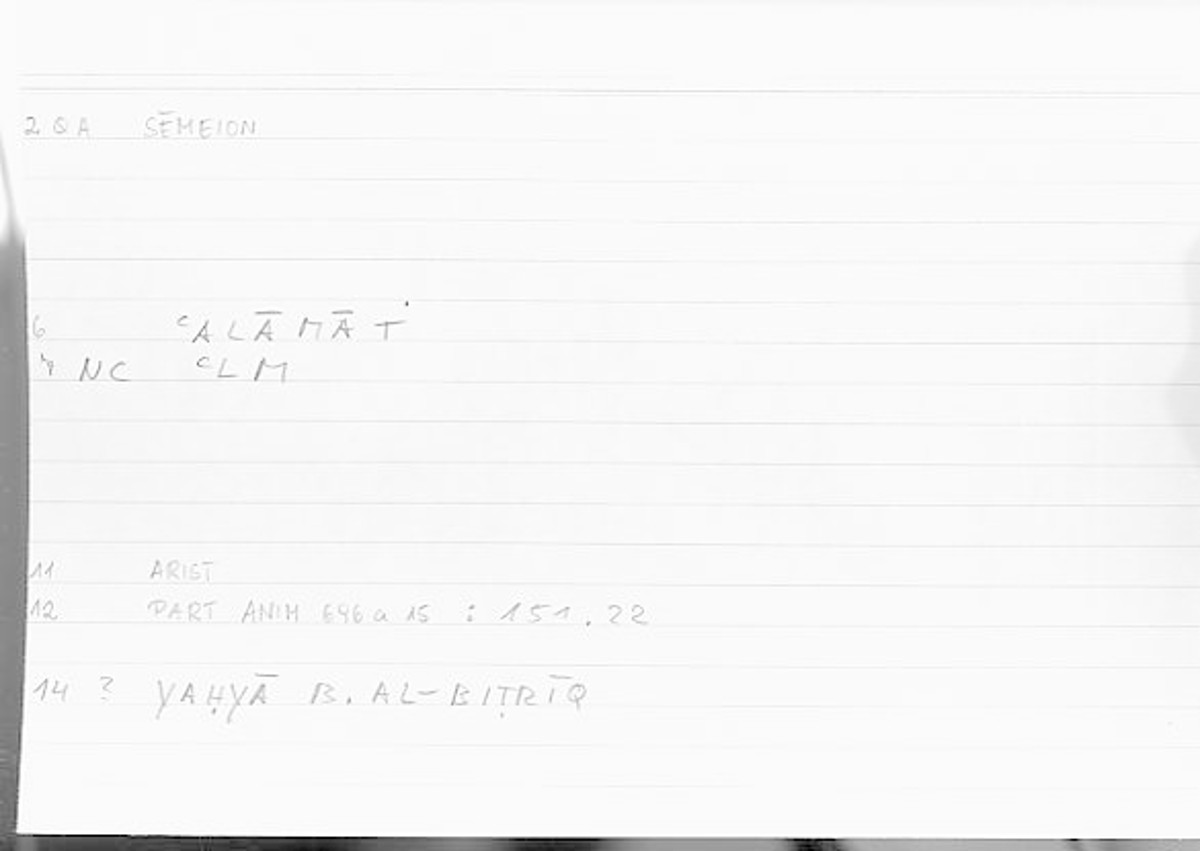 2 QA SĒMEION
6 ʿALĀMĀT
NC ʿLM
11 ARIST
12 PART ANIM 696 a 15 : 151.22
14 ? YAḤYĀ B. AL-BIṬRĪQ